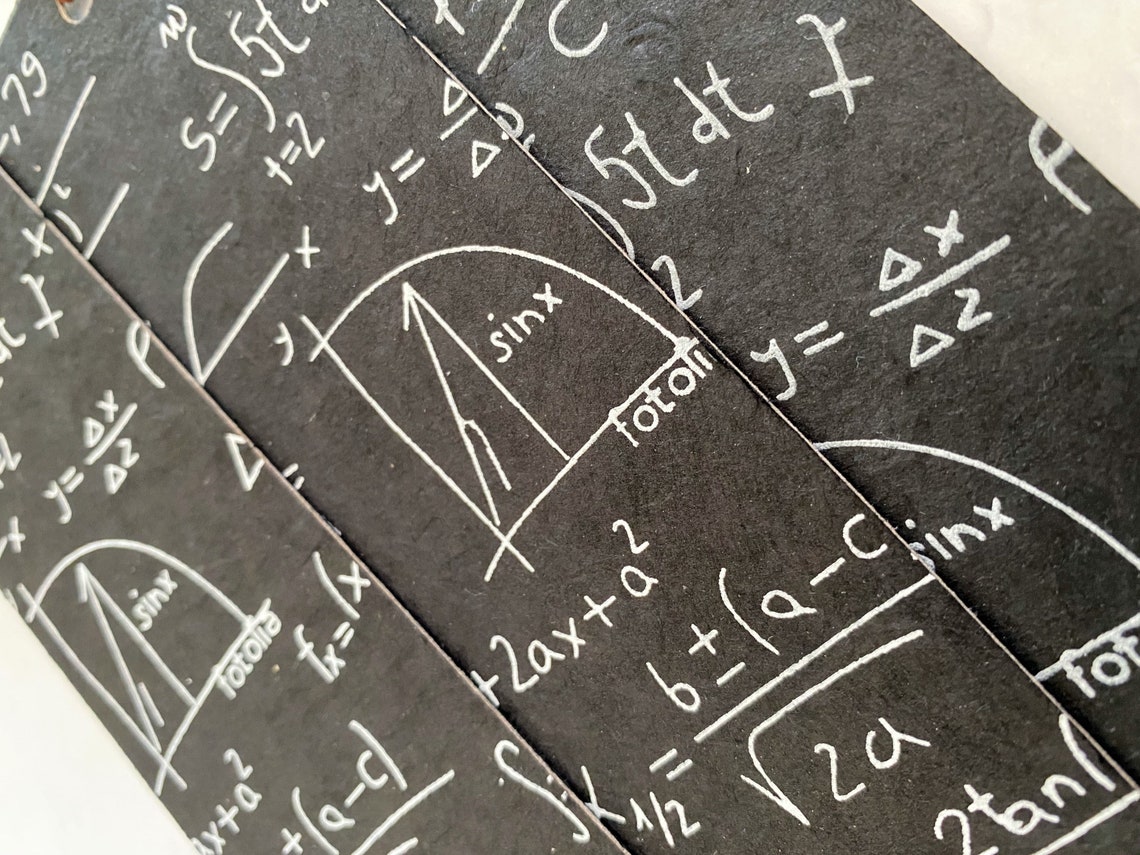 = 79
S = ∫ 5t d
t=2
y = Δ / Δ2
x
y
sin x
fotoli
+2ax+a²
x 1/2 = b ± (a - c / √2a
C
5t dt
2
y = Δx / Δ2
sinx
fot
2tan(
y = Δx / Δ2
sinx
fotolia
fx = (x
ax+a²
+ (a-c)